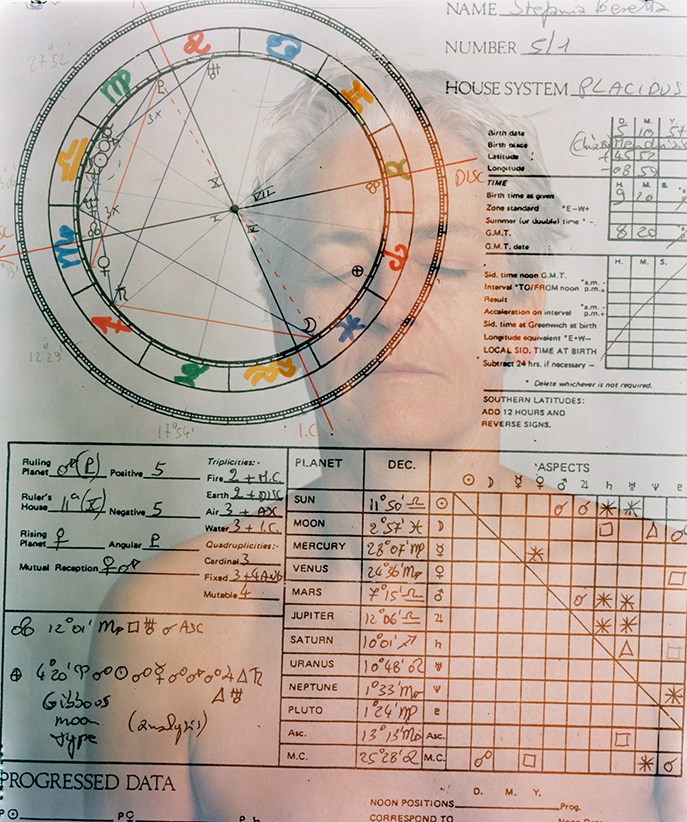 NAME Stepnia Beretta
NUMBER 5/1
HOUSE SYSTEM PLACIDUS
27°52'
Birth date 5 10 57
D. M. Y.
Birth place
Latitude + 45 52
Longitude - 08 59
TIME H. M. S.
Birth time as given 9 20
Zone standard *E-W+
Summer (or double) time * -
G.M.T. 8 20
G.M.T. date
DISC
X
VII
IV
3x
3x
H. M. S.
Sid. time noon G.M.T.
Interval *TO/FROM noon *a.m. - p.m.+
Result
Acceleration on interval *a.m. - p.m.+
Sid. time at Greenwich at birth
Longitude equivalent *E+W-
LOCAL SID. TIME AT BIRTH
Subtract 24 hrs. if necessary -
* Delete whichever is not required.
SOUTHERN LATITUDES:
ADD 12 HOURS AND
REVERSE SIGNS.
17°54'
I.C.
Ruling Planet ♂ (P) Positive 5
Ruler's House 11ª (X) Negative 5
Rising Planet ♀ Angular P
Mutual Reception ♀ ♂
Triplicities:-
Fire 2 + M.C.
Earth 2 + DISC
Air 3 + AX
Water 3 + I.C.
Quadruplicities:-
Cardinal 3
Fixed 3 + 4 Ang
Mutable 4
12°01' ♏ □ ♅ ☌ ASC
4°20' ♈
△ ♅
Gibbous
moon (analysis)
type
PLANET DEC. ASPECTS
SUN 11°50' ♎ ☉
MOON 2°57' ♓ ☽
MERCURY 28°07' ♍ ☿
VENUS 24°36' ♏ ♀
MARS 7°15' ♎ ♂
JUPITER 12°06' ♎ ♃
SATURN 10°01' ♐ ♄
URANUS 10°48' ♌ ♅
NEPTUNE 1°33' ♏ ♆
PLUTO 1°24' ♍ P
Asc. 13°13' ♏ Asc.
M.C. 25°28' ♌ M.C.
PROGRESSED DATA
D. M. Y.
NOON POSITIONS Prog.
CORRESPOND TO
P ☉ P ☾ P h